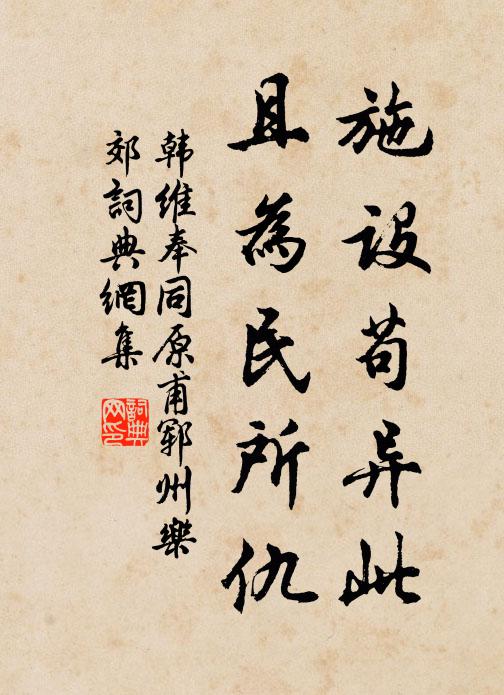 施设苟异此
且為民所仇
韩维奉同原甫郓州樂
郊詞典網集
詞典网印